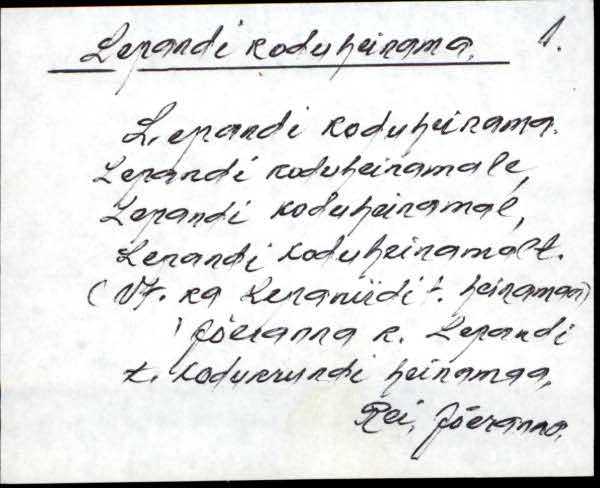 Lepandi koduheinama. 1.
Lepandi koduheinama.
Lepandi koduheinamale,
Lepandi koduheinamal,
Lepandi koduheinamalt.
(Vt. ka Lepaniidi t. heinamaa)
Jõeranna k. Lepandi
t. kodukrundi heinamaa,
Rei, Jõeranna.